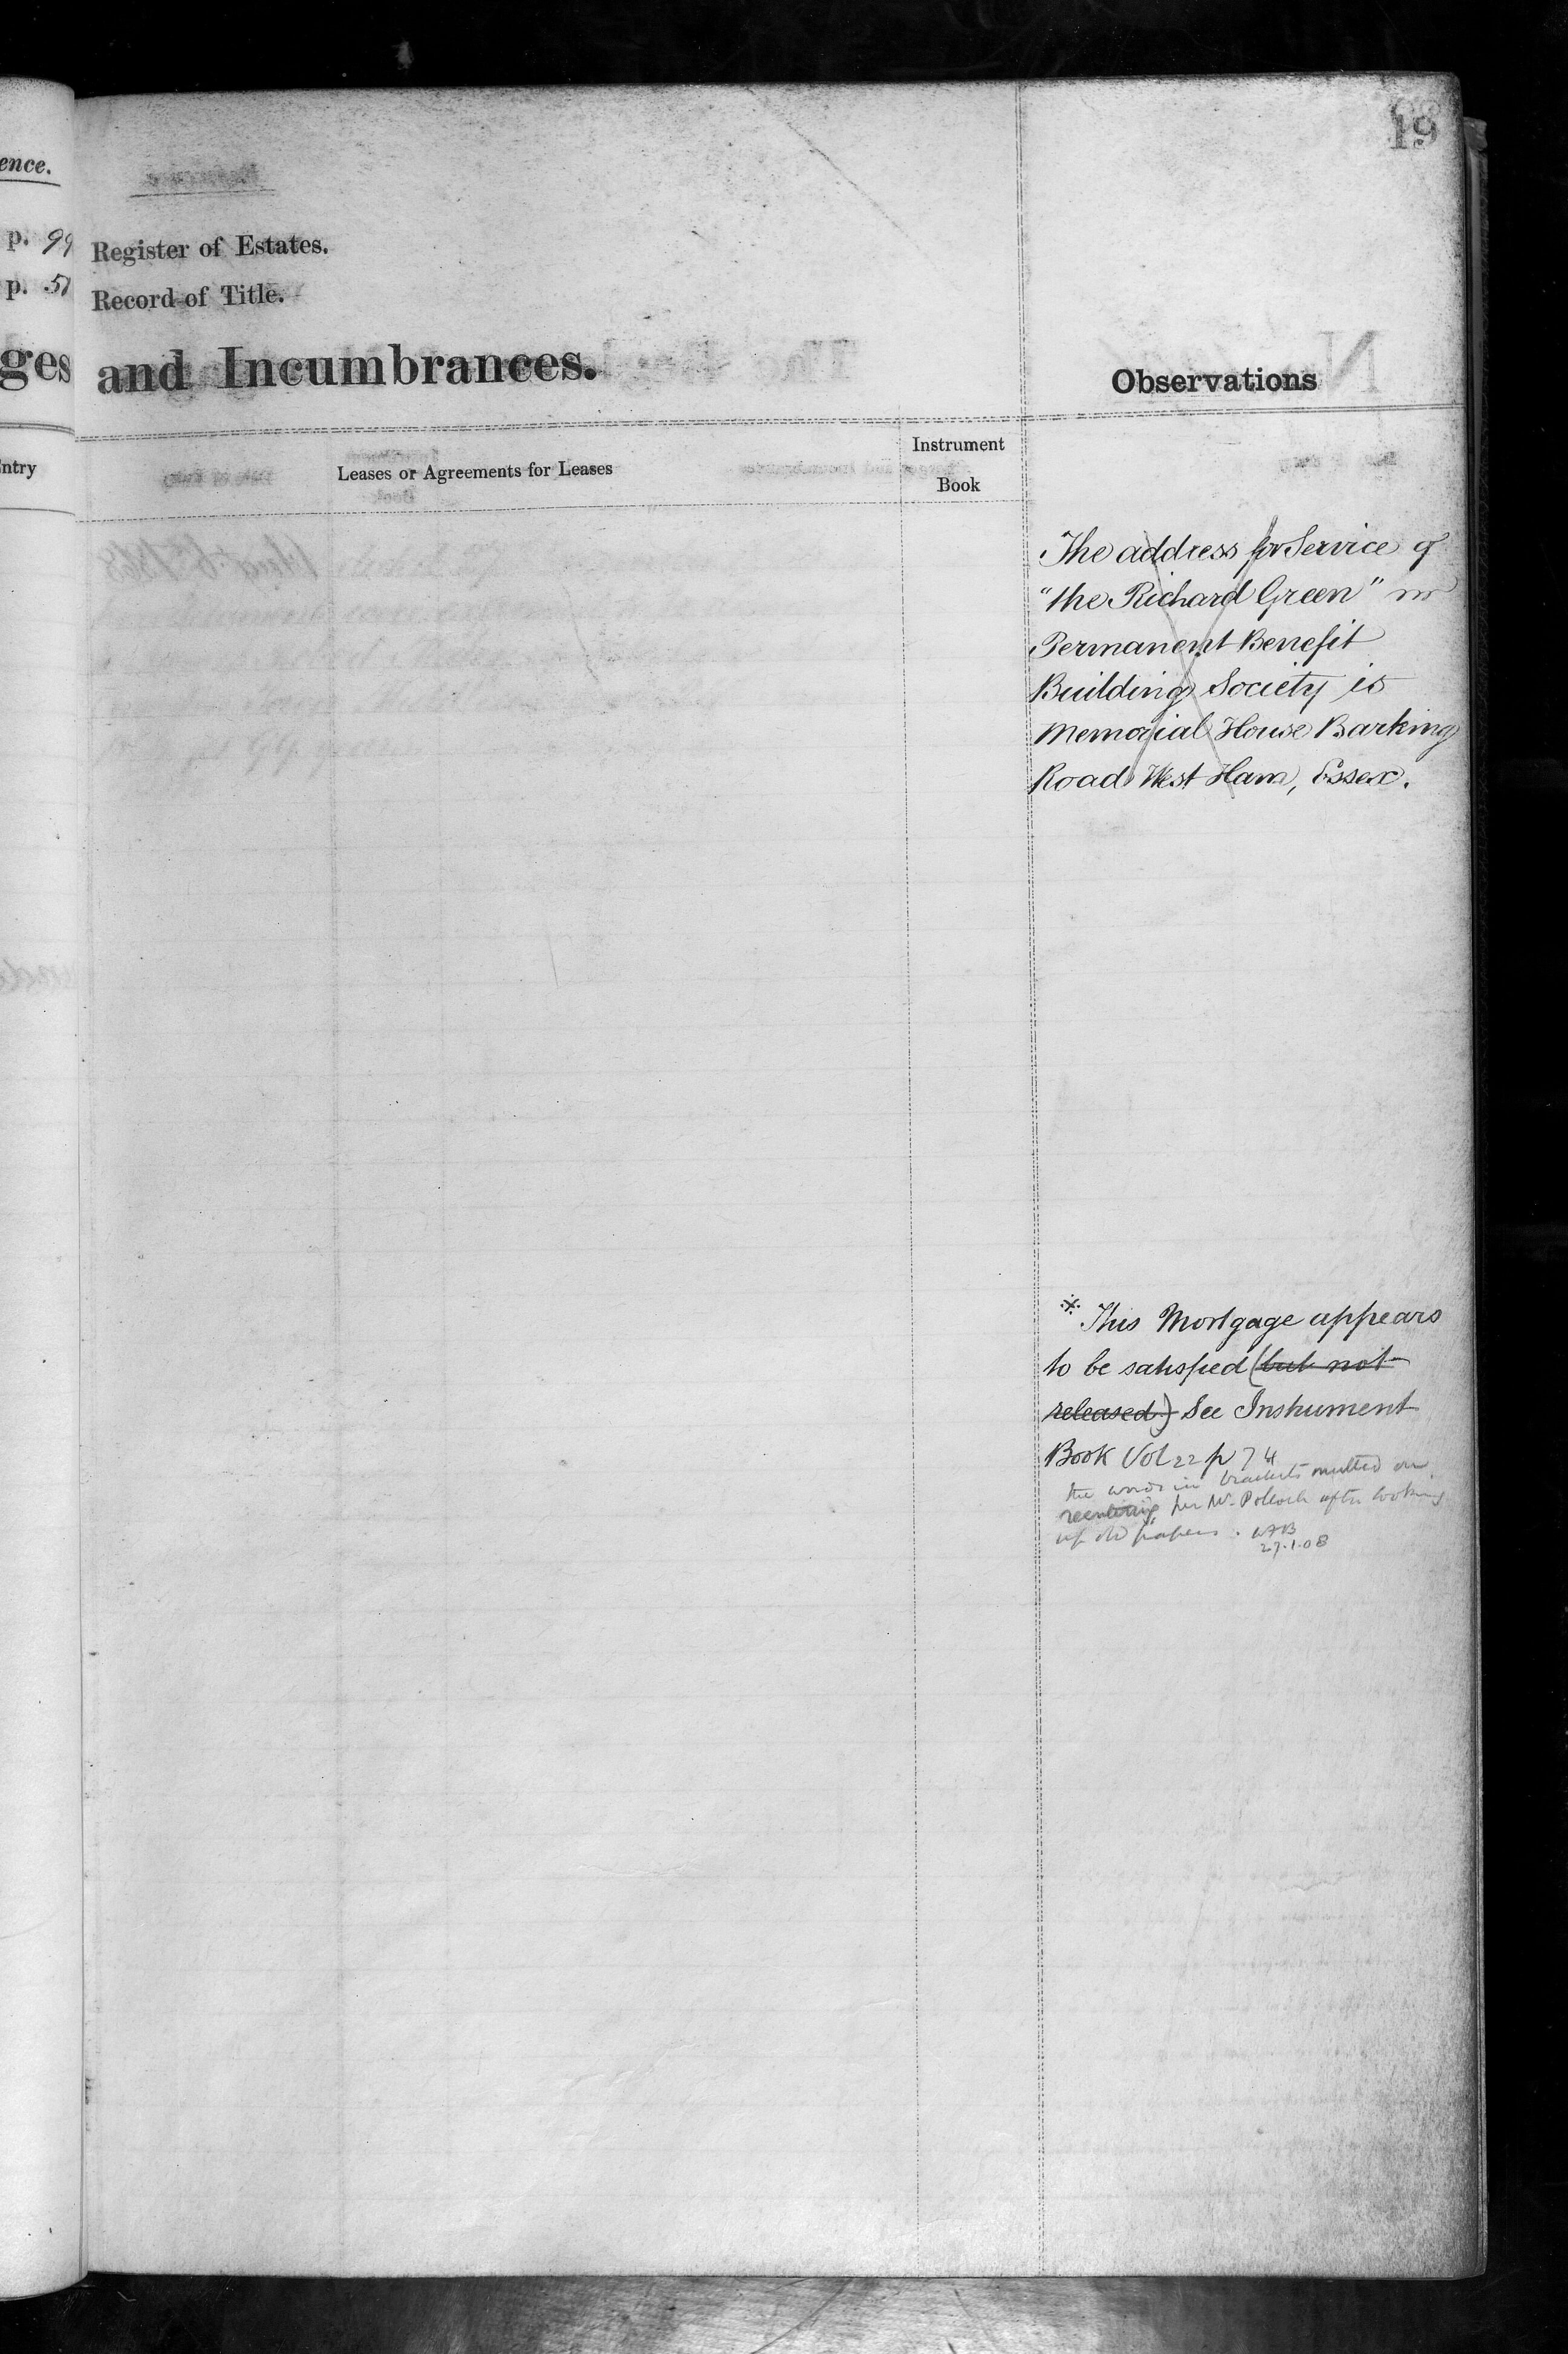 19
ence.
p. 99
Register of Estates.
p. 51
Record of Title.
ges and Incumbrances.
Observations
Entry
Leases or Agreements for Leases
Instrument
Book
The address for Service of
"the Richard Green"
Permanent Benefit
Building Society is
Memorial House Barking
Road West Ham, Essex.
* This Mortgage appears
to be satisfied (but not
released) See Instrument
Book Vol 22 p 74
the words in brackets omitted on
per Mr. Pollock after looking
up old papers. WAB
27.1.08